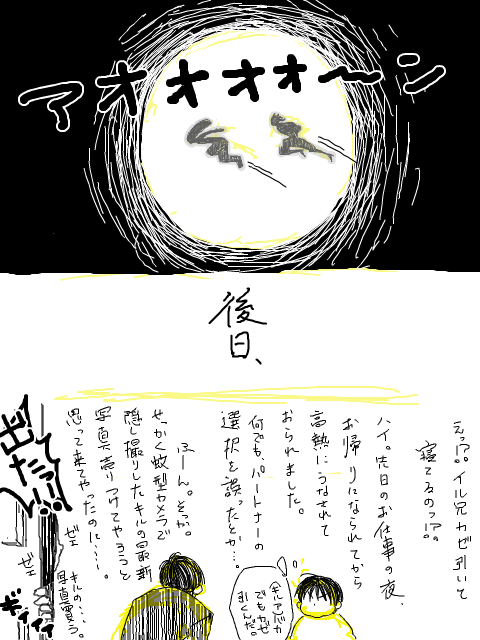 アオオオオ〜ン
後日、
えっ!?イル兄カゼ引いて
寝てるのっ!?
ハイ。先日のお仕事の夜、
お帰りになられてから
高熱にうなされて
おられました。
何でも、パートナーの
選択を誤ったとか…。
ふーん。そっか。
せっかく蚊型カメラで
隠し撮りしたキルの最新
写真売りつけてやろうと
思って来てやったのに…。
(キルアバカ
でもカゼ
引くんだ。)
出たっ!!
ゼェ
ゼェ
キルの…
写真買う。
ギィィィ